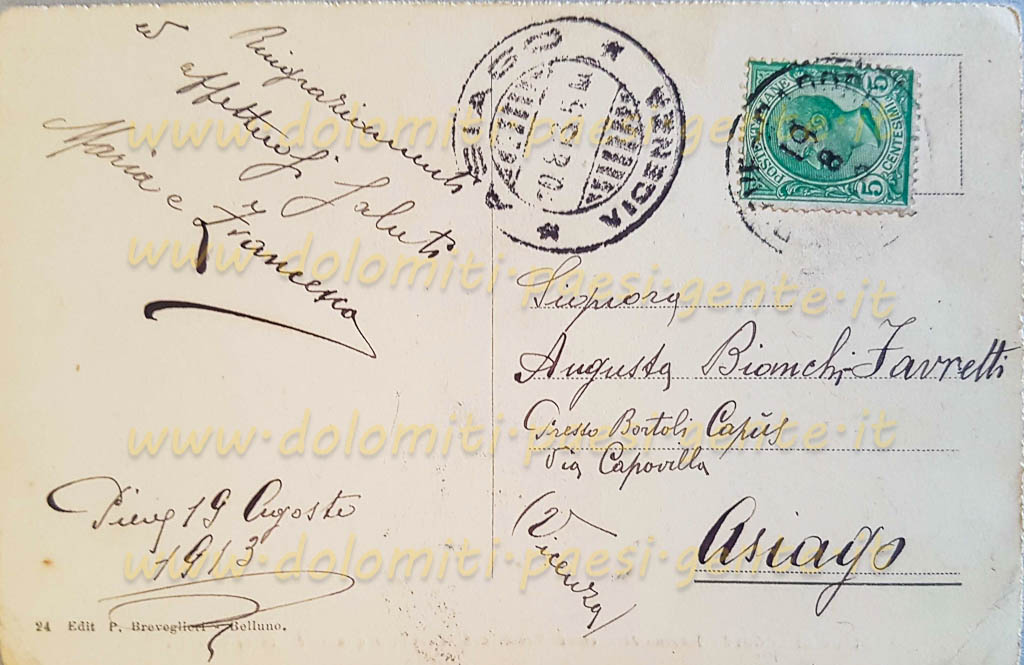 Ringraziamenti
ed affettuosi Saluti
Maria e Francesca
Pieve 19 Agosto
1913
24 Edit P. Breveglieri - Belluno.
ASIAGO
VICENZA
POSTE ITALIANE
CENTESIMI
5
5
19
8
Signora
Augusta Bianchi Favretti
Presso Bortoli Capüs
Via Capovilla
(Vicenza)
Asiago
www.dolomiti-paesi-gente.it
www.dolomiti-paesi-gente.it
www.dolomiti-paesi-gente.it
www.dolomiti-paesi-gente.it